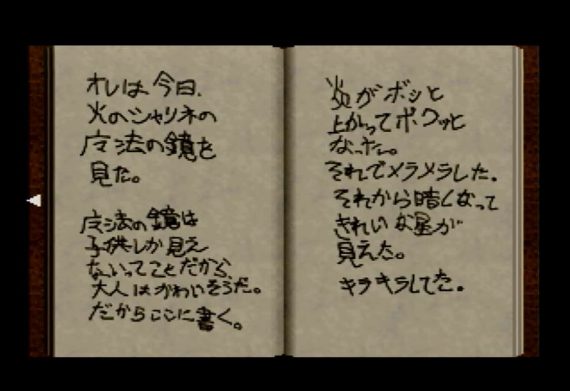 オレは今日、
火のシャリネの
魔法の鏡を
見た。
魔法の鏡は
子供しか見え
ないってことだから、
大人はかわいそうだ。
だからここに書く。
炎がボッと
上がってボクッと
なった。
それでメラメラした。
それから暗くなって
きれいな星が
見えた。
キラキラしてた。